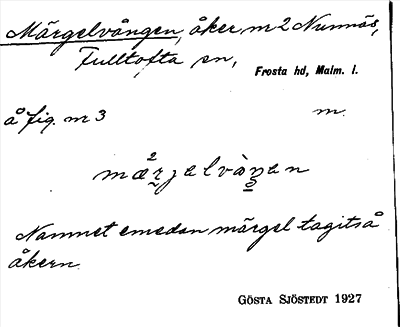 Märgelvången, åker nr 2 Nunnäs,
Fulltofta sn,
Frosta hd, Malm. l.
å fig. nr 3 m.
Namnet emedan märgel tagits å
åkern.
GÖSTA SJÖSTEDT 1927